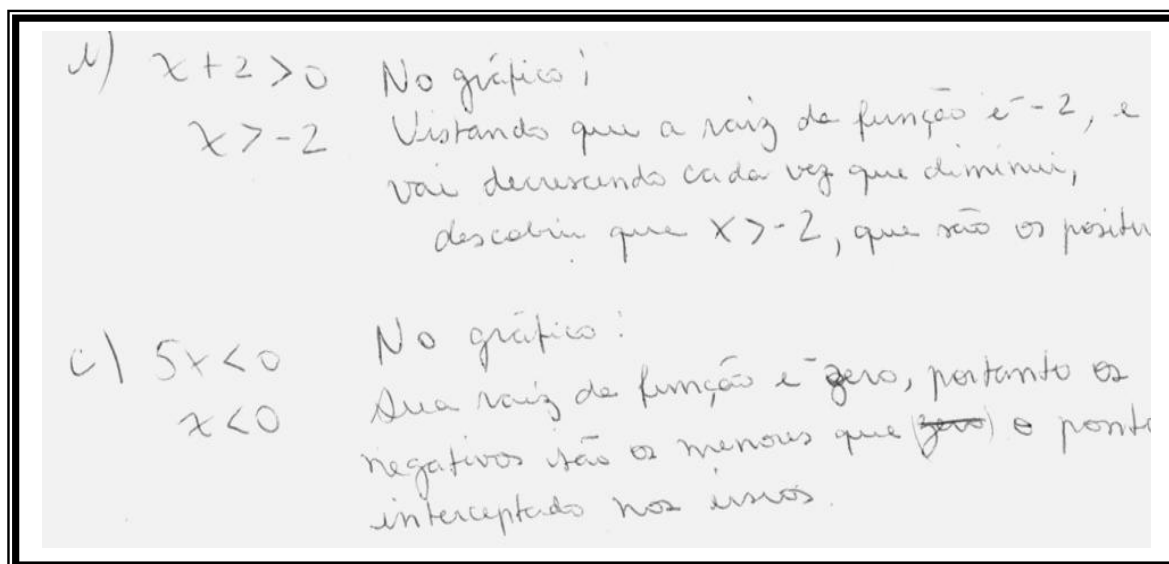 x + 2 > 0 No gráfico:
x > -2 Vistando que a raiz da função é -2, e
vai decrescendo cada vez que diminui,
descobri que x > -2, que são os positiv
c) 5x < 0 No gráfico:
x < 0 Sua raiz da função é zero, portanto os
negativos são os menores que (zero) o ponto
interceptado nos